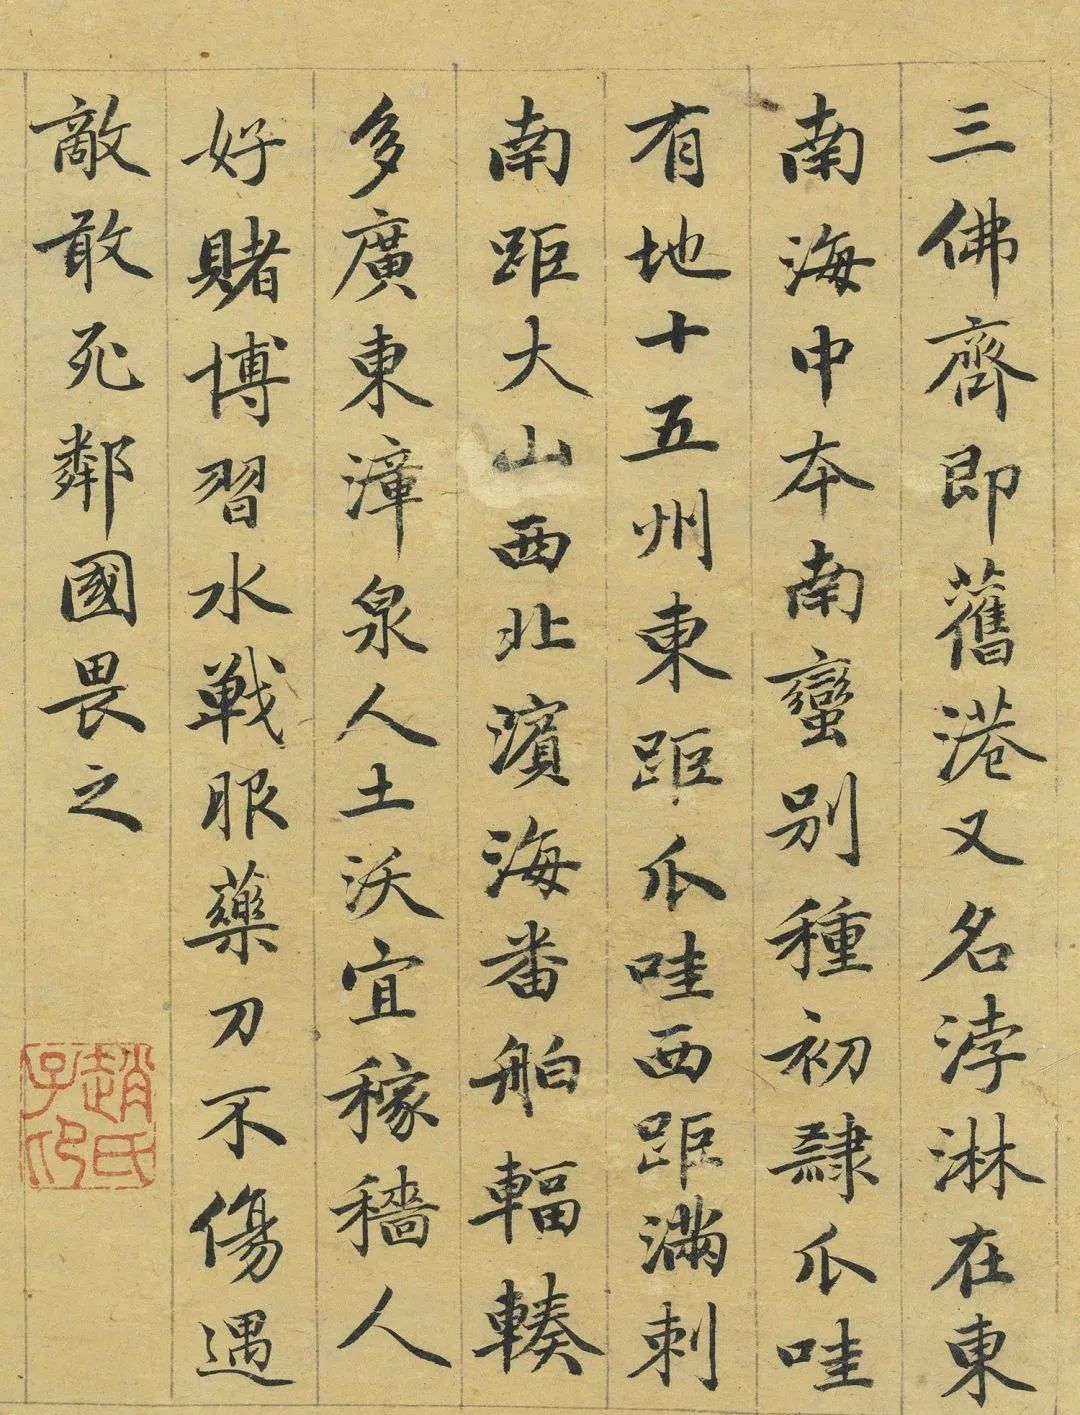 三佛齊即舊港又名浡淋在東
南海中本南蠻別種初隸爪哇
有地十五州東距爪哇西距滿剌
南距大山西北濱海番舶輻輳
多廣東漳泉人土沃宜稼穡人
好賭博習水戰服藥刀不傷遇
敵敢死鄰國畏之
趙氏
子卬